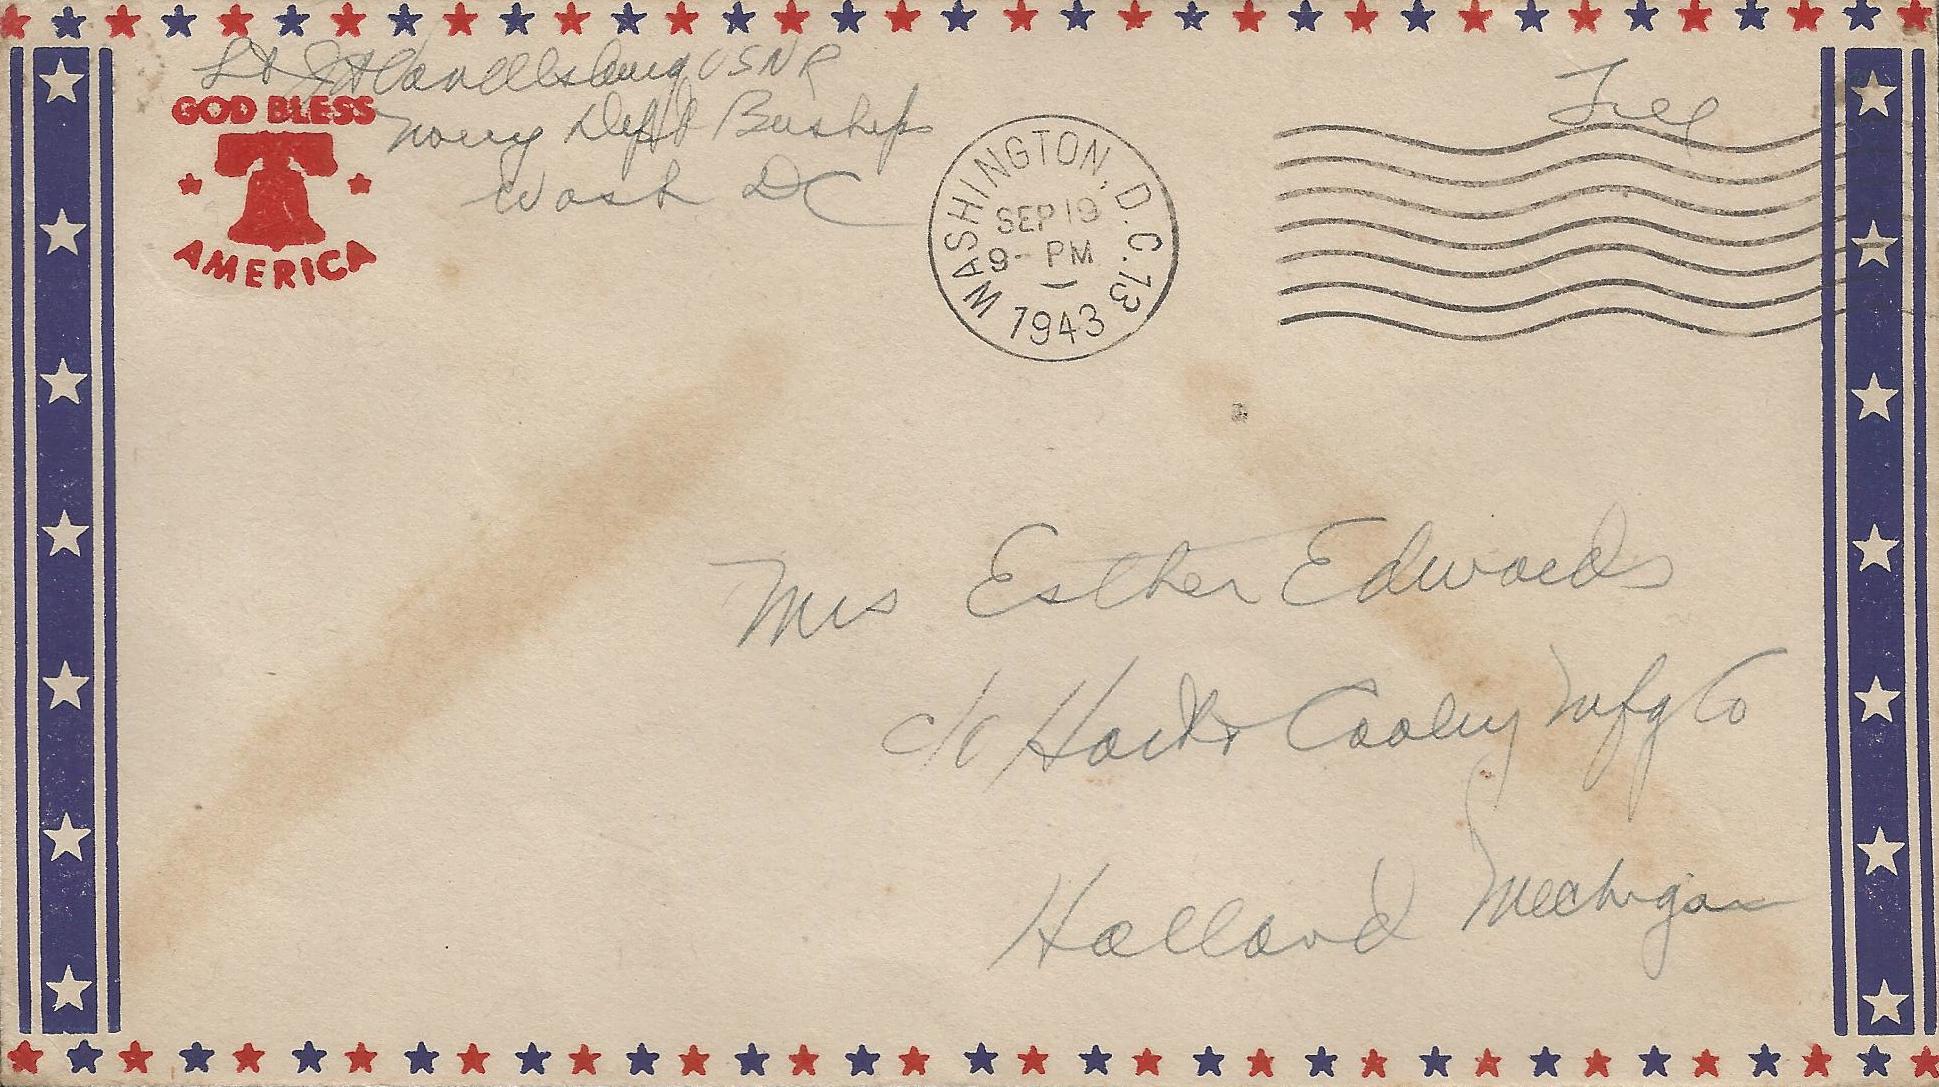 Lt J H Van Alsburg USNR
Navy Dept Buships
Wash DC
GOD BLESS
AMERICA
Free
WASHINGTON, D.C. 13
SEP 19
9- PM
1943
Mrs Esther Edwards
c/o Hart & Cooley Mfg Co
Holland Michigan